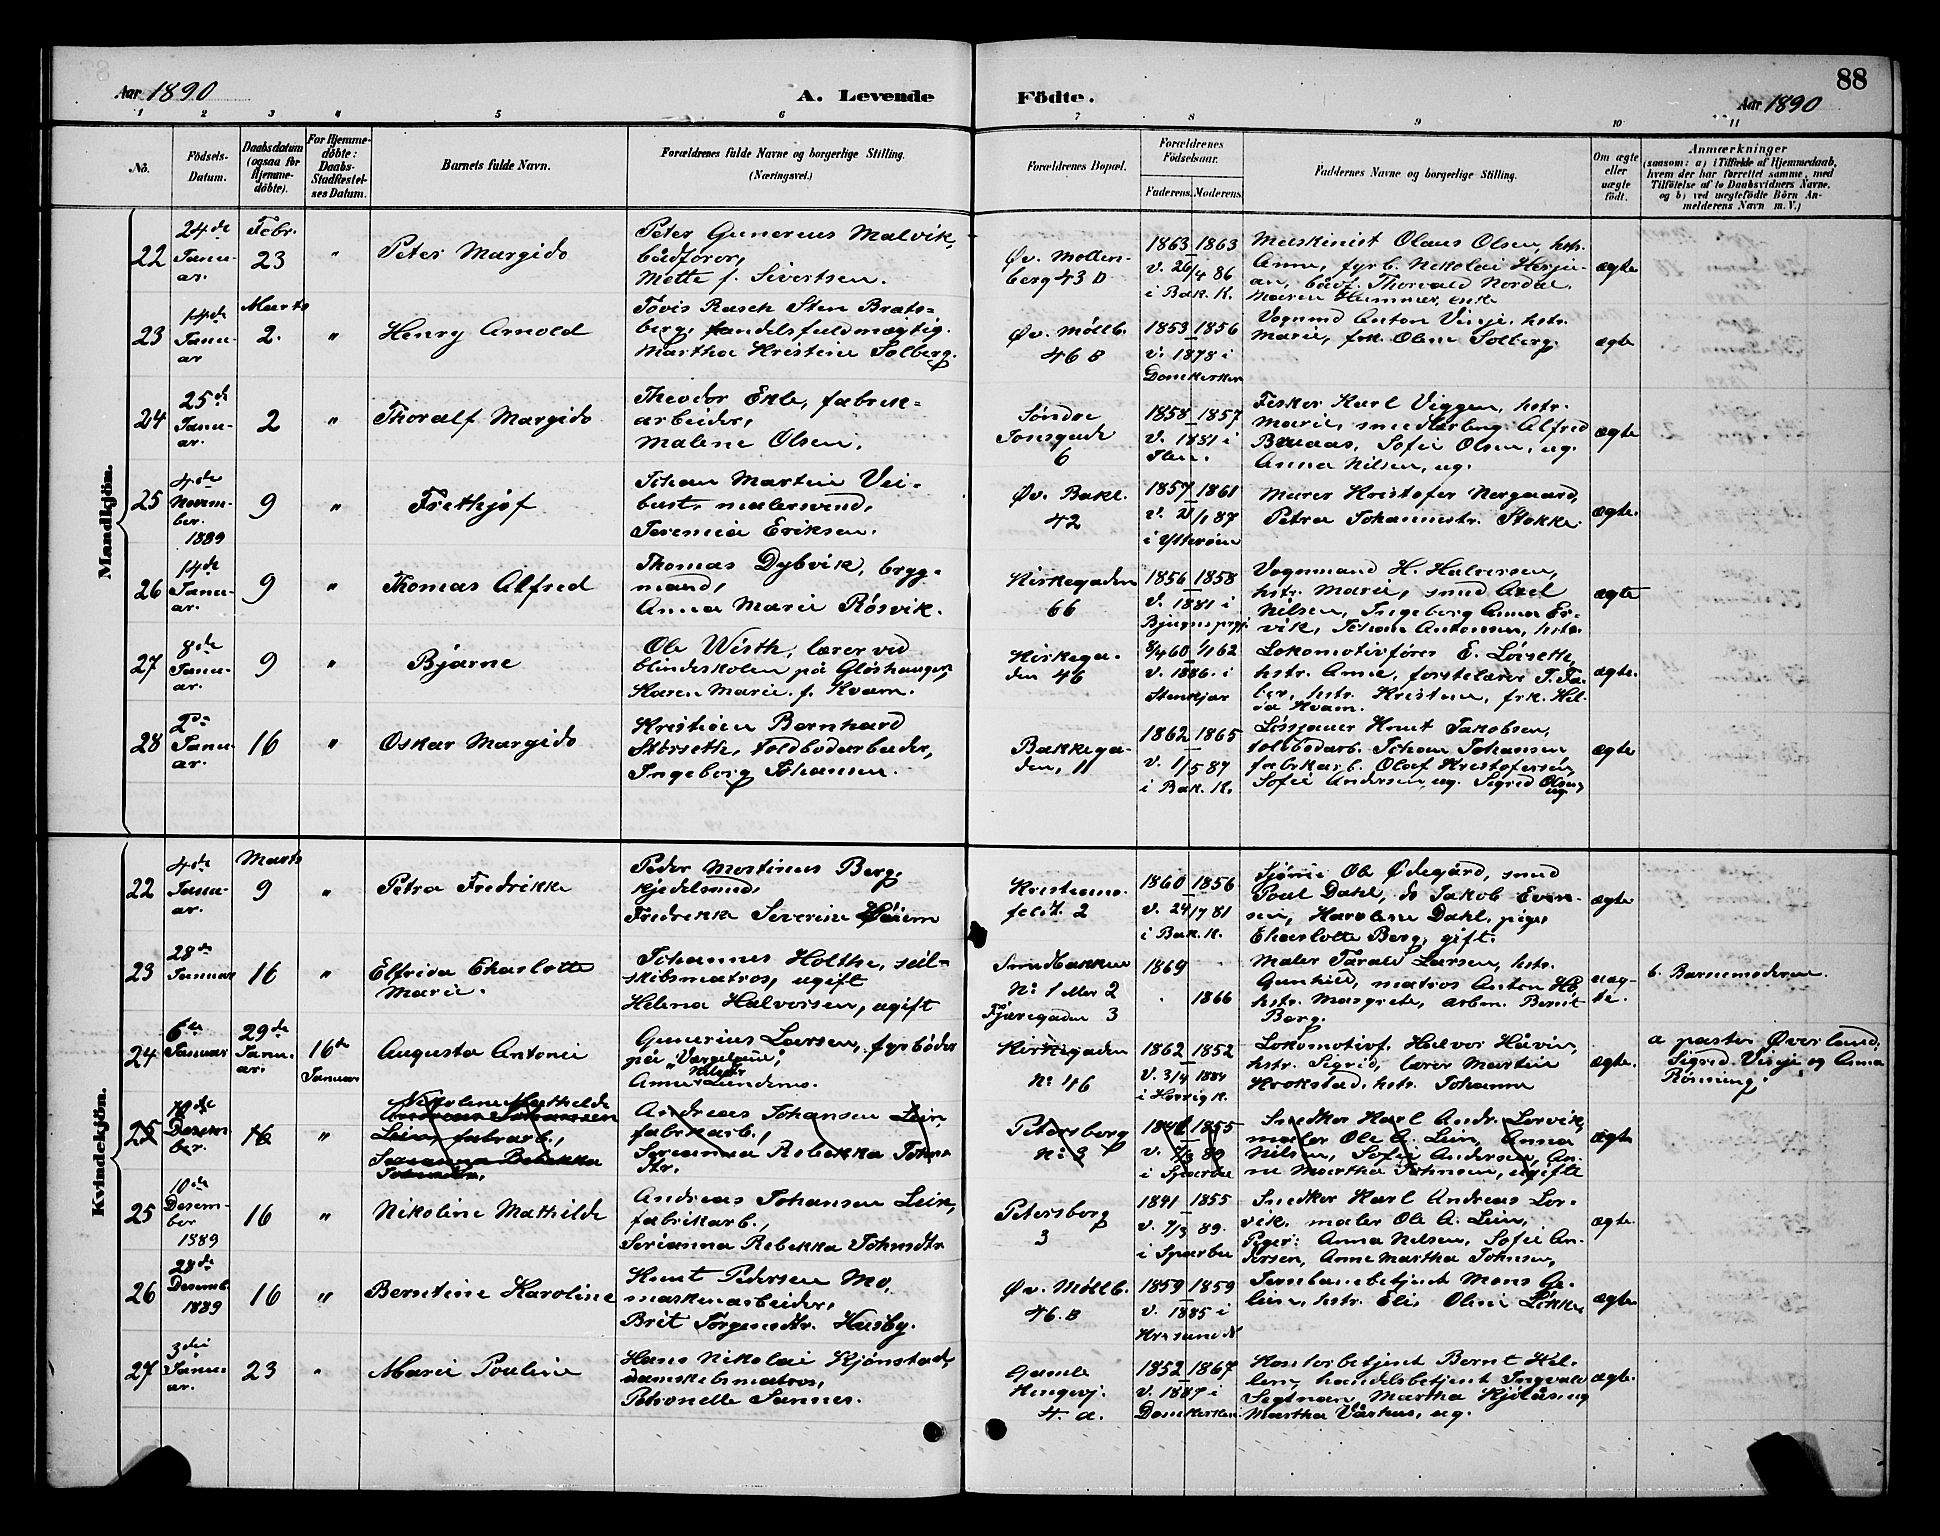 88
Aar 1890
A. Levende
Födte.
Aar 1890
1 2 3 4 5 6 7 8 9 10 11
No.
Födsels-
Datum.
Daabsdatum
(ogsaa for
Hjemme-
döbte).
For Hjemme-
döbte:
Daabs-
Stadfæstel-
ses Datum.
Barnets fulde Navn.
Forældrenes fulde Navne og borgerlige Stilling.
(Næringsvei.)
Forældrenes Bopæl.
Forældrenes
Födselsaar.
Faderens. Moderens.
Faddernes Navne og borgerlige Stilling.
Om ægte
eller
uægte
født.
Anmærkninger
(saasom: a) i Tilfælde af Hjemmedaab,
hvem der har forrettet samme, med
Tilföielse af to Daabsvidners Navne,
og b) ved uægtefödte Börn An-
melderens Navn m. V.)
Mandkjön.
22
24de
Janu-
ar.
Febr.
23
"
Peter Margido
Peter Gunerius Malvik,
bådfører,
Mette f. Sivertsen.
Øv. Møllen-
berg 43 D
1863 1863
v. 26/4 86
i Bak. K.
Maskinist Olaus Olsen, hstr.
Anne, fyrb. Nikolai Hesju-
an, bådf. Thorvald Nordal
Maren Hammer, enke
ægte
23
14de
Janu-
ar
Marts
2.
"
Henry Arnold
Tøvis Rasch Sten Brats-
berg, handelsfuldmægtig.
Martha Kristine Solberg.
Øv. Møllb.
46 B
1853 1856
v. 1878 i
Domkirken
Vognmd Anton Viisje, hstr.
Marie, frk. Oline Solberg.
ægte
24
25de
Janu-
ar.
2
"
Thoralf Margido
Theodor Ekle, fabrik-
arbeider,
Malene Olsen.
Søndre
Tonsgade
6
1858 1857
v. 1881 i
Ilen.
Fisker Karl Viggen, hstr.
Marie, smedlærling Alfred
Bruaas, Sofie Olsen, ug.
Anna Nilsen, ug.
ægte
25
4de
Novem-
ber.
1889
9
"
Frithjof
Johan Martin Vei-
bust, malersvend,
Jeremia Eriksen.
Øv. Bakl.
42
1857 1861
v. 2/1 87
i Ytterøen
Murer Kristofer Norgaard,
Petra Johannesdtr. Stokke.
ægte.
26
14de
Janu-
ar.
9
"
Thomas Alfred
Thomas Dybvik, bryg-
mand,
Anna Marie Røsvik.
Kirkegaden
66
1856 1858
v. 1881 i
Bjugnsprgj.
Vognmand H. Halvorsen,
hstr. Marie, smed Axel
Nilsen, Ingeborg Anna Er-
vik, Johan Antonsen, hstr.
ægte
27
8de
Janu-
ar.
9
"
Bjarne
Ole Wisth, lærer ved
blindeskolen på Gløshaugen,
Karen Marie f. Kvam.
Kirkega-
den 46
8/4 60 1/1 62
v. 1886. i
Stenkjær
Lokomotivfører E. Løiseth,
hstr. Anne, førstelærer J. Fa-
ber, hstr. Kristine, frk. Hil-
da Kvam.
ægte.
28
2de
Janu-
ar.
16
"
Oskar Margido
Kristian Bernhard
Størseth, toldbodarbeider,
Ingeborg Johansen.
Bakkega-
den, 11
1862 1865
v. 1/5 87
i Bak. K.
Løsjauer Knut Jakobsen,
toldbodarb. Johan Johansen
fabrkarb. Olaf Kristofersen,
Sofie Andersen, ug. Sigrid Olsen,
ug.
ægte
Kvindekjön.
22
4de
Janu-
ar.
Marts
9
"
Petra Fredrikke
Peder Martinus Berg,
kjedelsmed,
Fredrikke Severine
Kristians-
feldt. 2
1860 1856
v. 24/7 81
i Bak. K.
Sjømd Ole Ødegård, smed
Poul Dahl, do Jakob Even-
sen, Haroline Dahl, pige,
Charlotte Berg, gift.
ægte
23
28de
Januar
16
"
Elfrida Charlotte
Marie.
Johannes Holthe, seil-
skibsmatros, ugift
Helena Halvorsen, ugift
Smedbakken
No 1 eller 2
Fjæregaden 3
1869
1866
Maler Tarald Larsen, hstr.
Gunhild, matros Anton Hø,
hstr. Margrete, arbm. Bernt
Berg.
uæg-
te.
b. Barnemoderen.
24
6te
Januar
29de
Janu-
ar.
16de
Januar
Augusta Antonie
Gunerius Larsen, fyrbøder
på "Værgeland",
Anna Nilsdtr Lundemo.
Kirkegaden
No 46
1862 1852
v. 3/4 1884
i Horrig K.
Lokomotivf. Halvor Håven,
hstr. Sigrid, lærer Martin
Krokstad, hstr. Johanna
ægte.
a pastor Øverland,
Sigrid Viisje og Anna
Rønning,
25
10de
Desem-
ber.
16
"
Nikoline Mathilde
Andreas Johansen
Lein, fabrarb.,
Serianna Rebekka
Andreas Johansen Lein,
fabrikarb.,
Serianna Rebekka Johns-
dtr.
Petersborg
No 3
1841 1855
v. 7/3 89
i Sparbu
Snedker Karl Andr. Lorvik,
maler Ole A. Lein, Anna
Nilsen, Sofie Andersen, An-
ne Martha Johnsen, ugifte
ægte
25
10de
Desem-
ber
1889
16
"
Nikoline Mathilde
Andreas Johansen Lein,
fabrikarb.,
Serianna Rebekka Johnsdtr
Petersborg
3
1841 1855
v. 7/3 89.
i Sparbu
Snedker Karl Andreas Lor-
vik. maler Ole A. Lein,
Piger: Anna Nilsen, Sofie An-
dersen, Anne Martha Johnsen,
ægte.
26
28de
Desemb.
1889
16
"
Berntine Karoline
Knut Pedersen Mo,
maskinarbeider,
Brit Jørgensdtr. Husby.
Øv. Møllb.
46. B
1859 1859
v. 1885 i
Krsund N
Jernbanebetjent Mons Ge-
lein, hstr. Elis, Oline Løkke
ægte.
27
3die
Janu-
ar.
23
"
Marie Pouline
Hans Nikolai Kjønstad,
damskibsmatros,
Petronelle Sannes.
Gamle
Kongevj.
4. a.
1852 1867
v. 1887 i
Domkirken.
Kontorbetjent Bernt Hel-
lem, handelsbetjent Ingvald
Segtnan, Martha Kjølås, ug
Martha Vårhus, ug.
ægte.